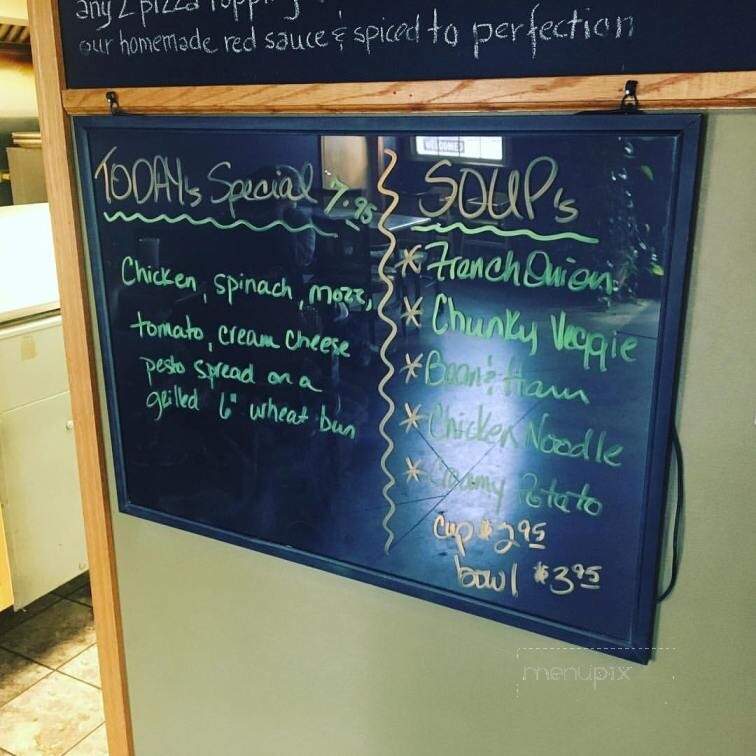 any 2 pizza topping
our homemade red sauce & spiced to perfection
TODAY's Special 7.95
Chicken, spinach, mozz,
tomato, cream cheese
pesto spread on a
grilled 6" wheat bun
SOUP's
* French Onion
* Chunky Veggie
* Bean & Ham
* Chicken Noodle
* Creamy Potato
cup $2.95
bowl $3.95
WELCOME
menupix